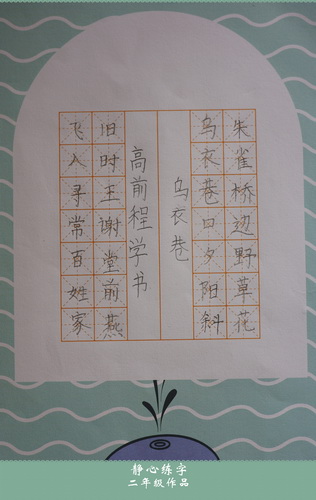 朱雀桥边野草花
乌衣巷口夕阳斜
乌衣巷
高前程学书
旧时王谢堂前燕
飞入寻常百姓家
静心练字
二年级作品